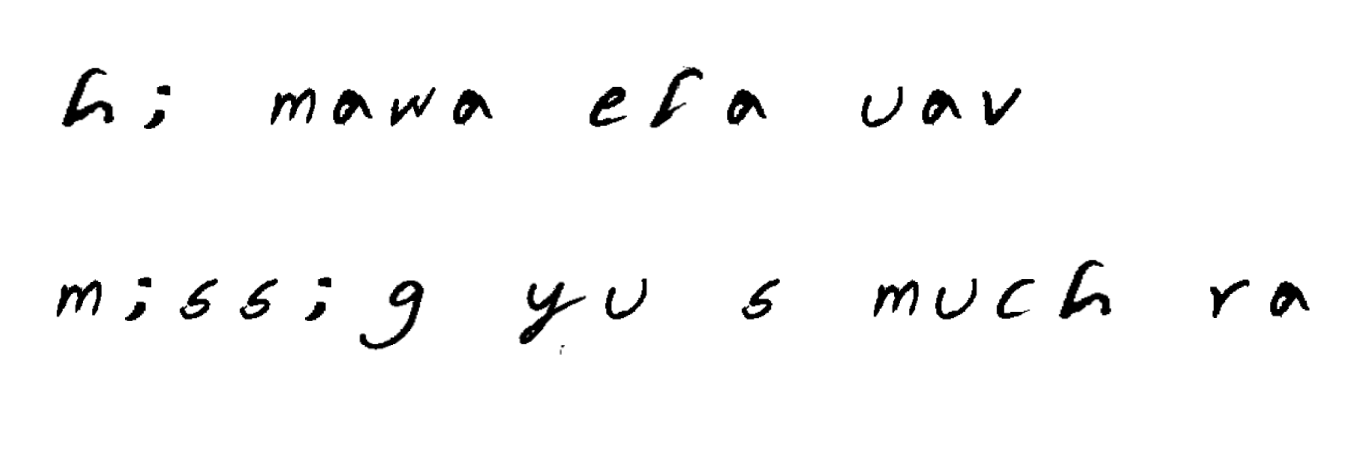 hi mawa efa uav
missig yu s much ra